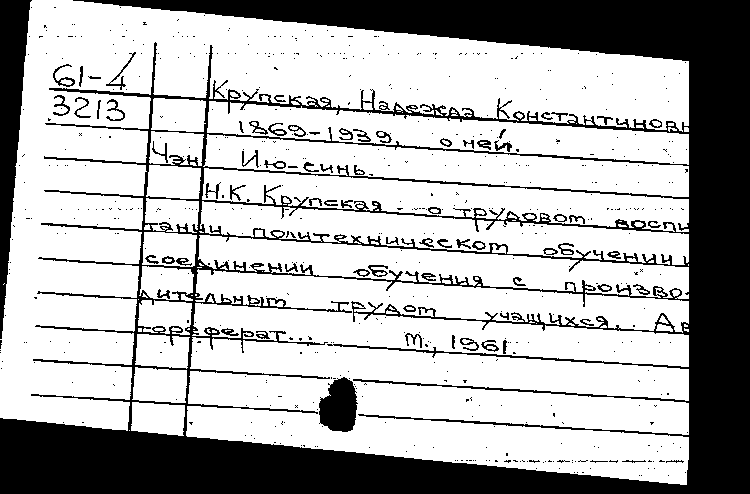 61-4
3213
Крупская, Надежда Константиновн
1869-1939, о ней.
Чэн Ию-синь.
Н.К. Крупская - о трудовом воспи
тании, политехническом обучении и
соединении обучения с произво-
дительным трудом учащихся. Ав
тореферат... М., 1961.